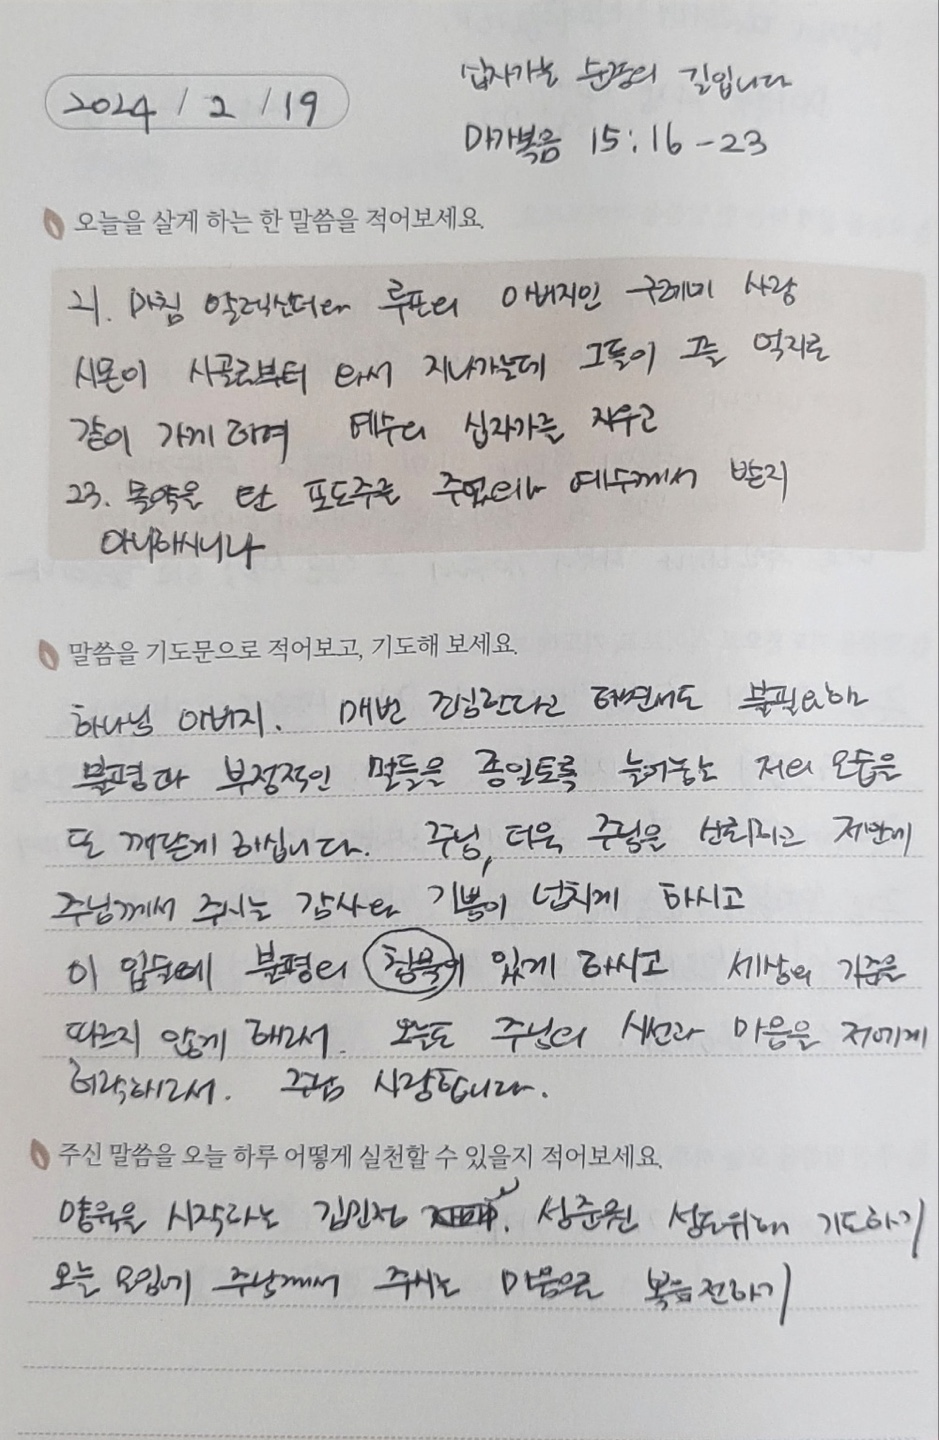 2024 / 2 / 19
십자가는 순종의 길입니다
마가복음 15:16-23
오늘을 살게 하는 한 말씀을 적어보세요.
21. 마침 알렉산더와 루포의 아버지인 구레네 사람
시몬이 시골로부터 와서 지나가는데 그들이 그를 억지로
같이 가게 하여 예수의 십자가를 지우고
23. 몰약을 탄 포도주를 주었으나 예수께서 받지
아니하시니라
말씀을 기도문으로 적어보고, 기도해 보세요.
하나님 아버지. 매번 조심한다고 하면서도 불필요한
불평과 부정적인 말들을 종일토록 늘어놓는 저의 모습을
또 깨닫게 하십니다. 주님, 더욱 주님을 신뢰하고 저만에
주님께서 주시는 감사와 기쁨이 넘치게 하시고
이 입술에 불평의 침묵이 있게 하시고 세상의 기준을
따르지 않게 해주소서. 오늘도 주님의 시선과 마음을 저에게
허락하소서. 주님 사랑합니다.
주신 말씀을 오늘 하루 어떻게 실천할 수 있을지 적어보세요.
양육을 시작하는 김민정 성준원 성도위해 기도하기
오늘 모임에 주님께서 주시는 마음으로 복음전하기